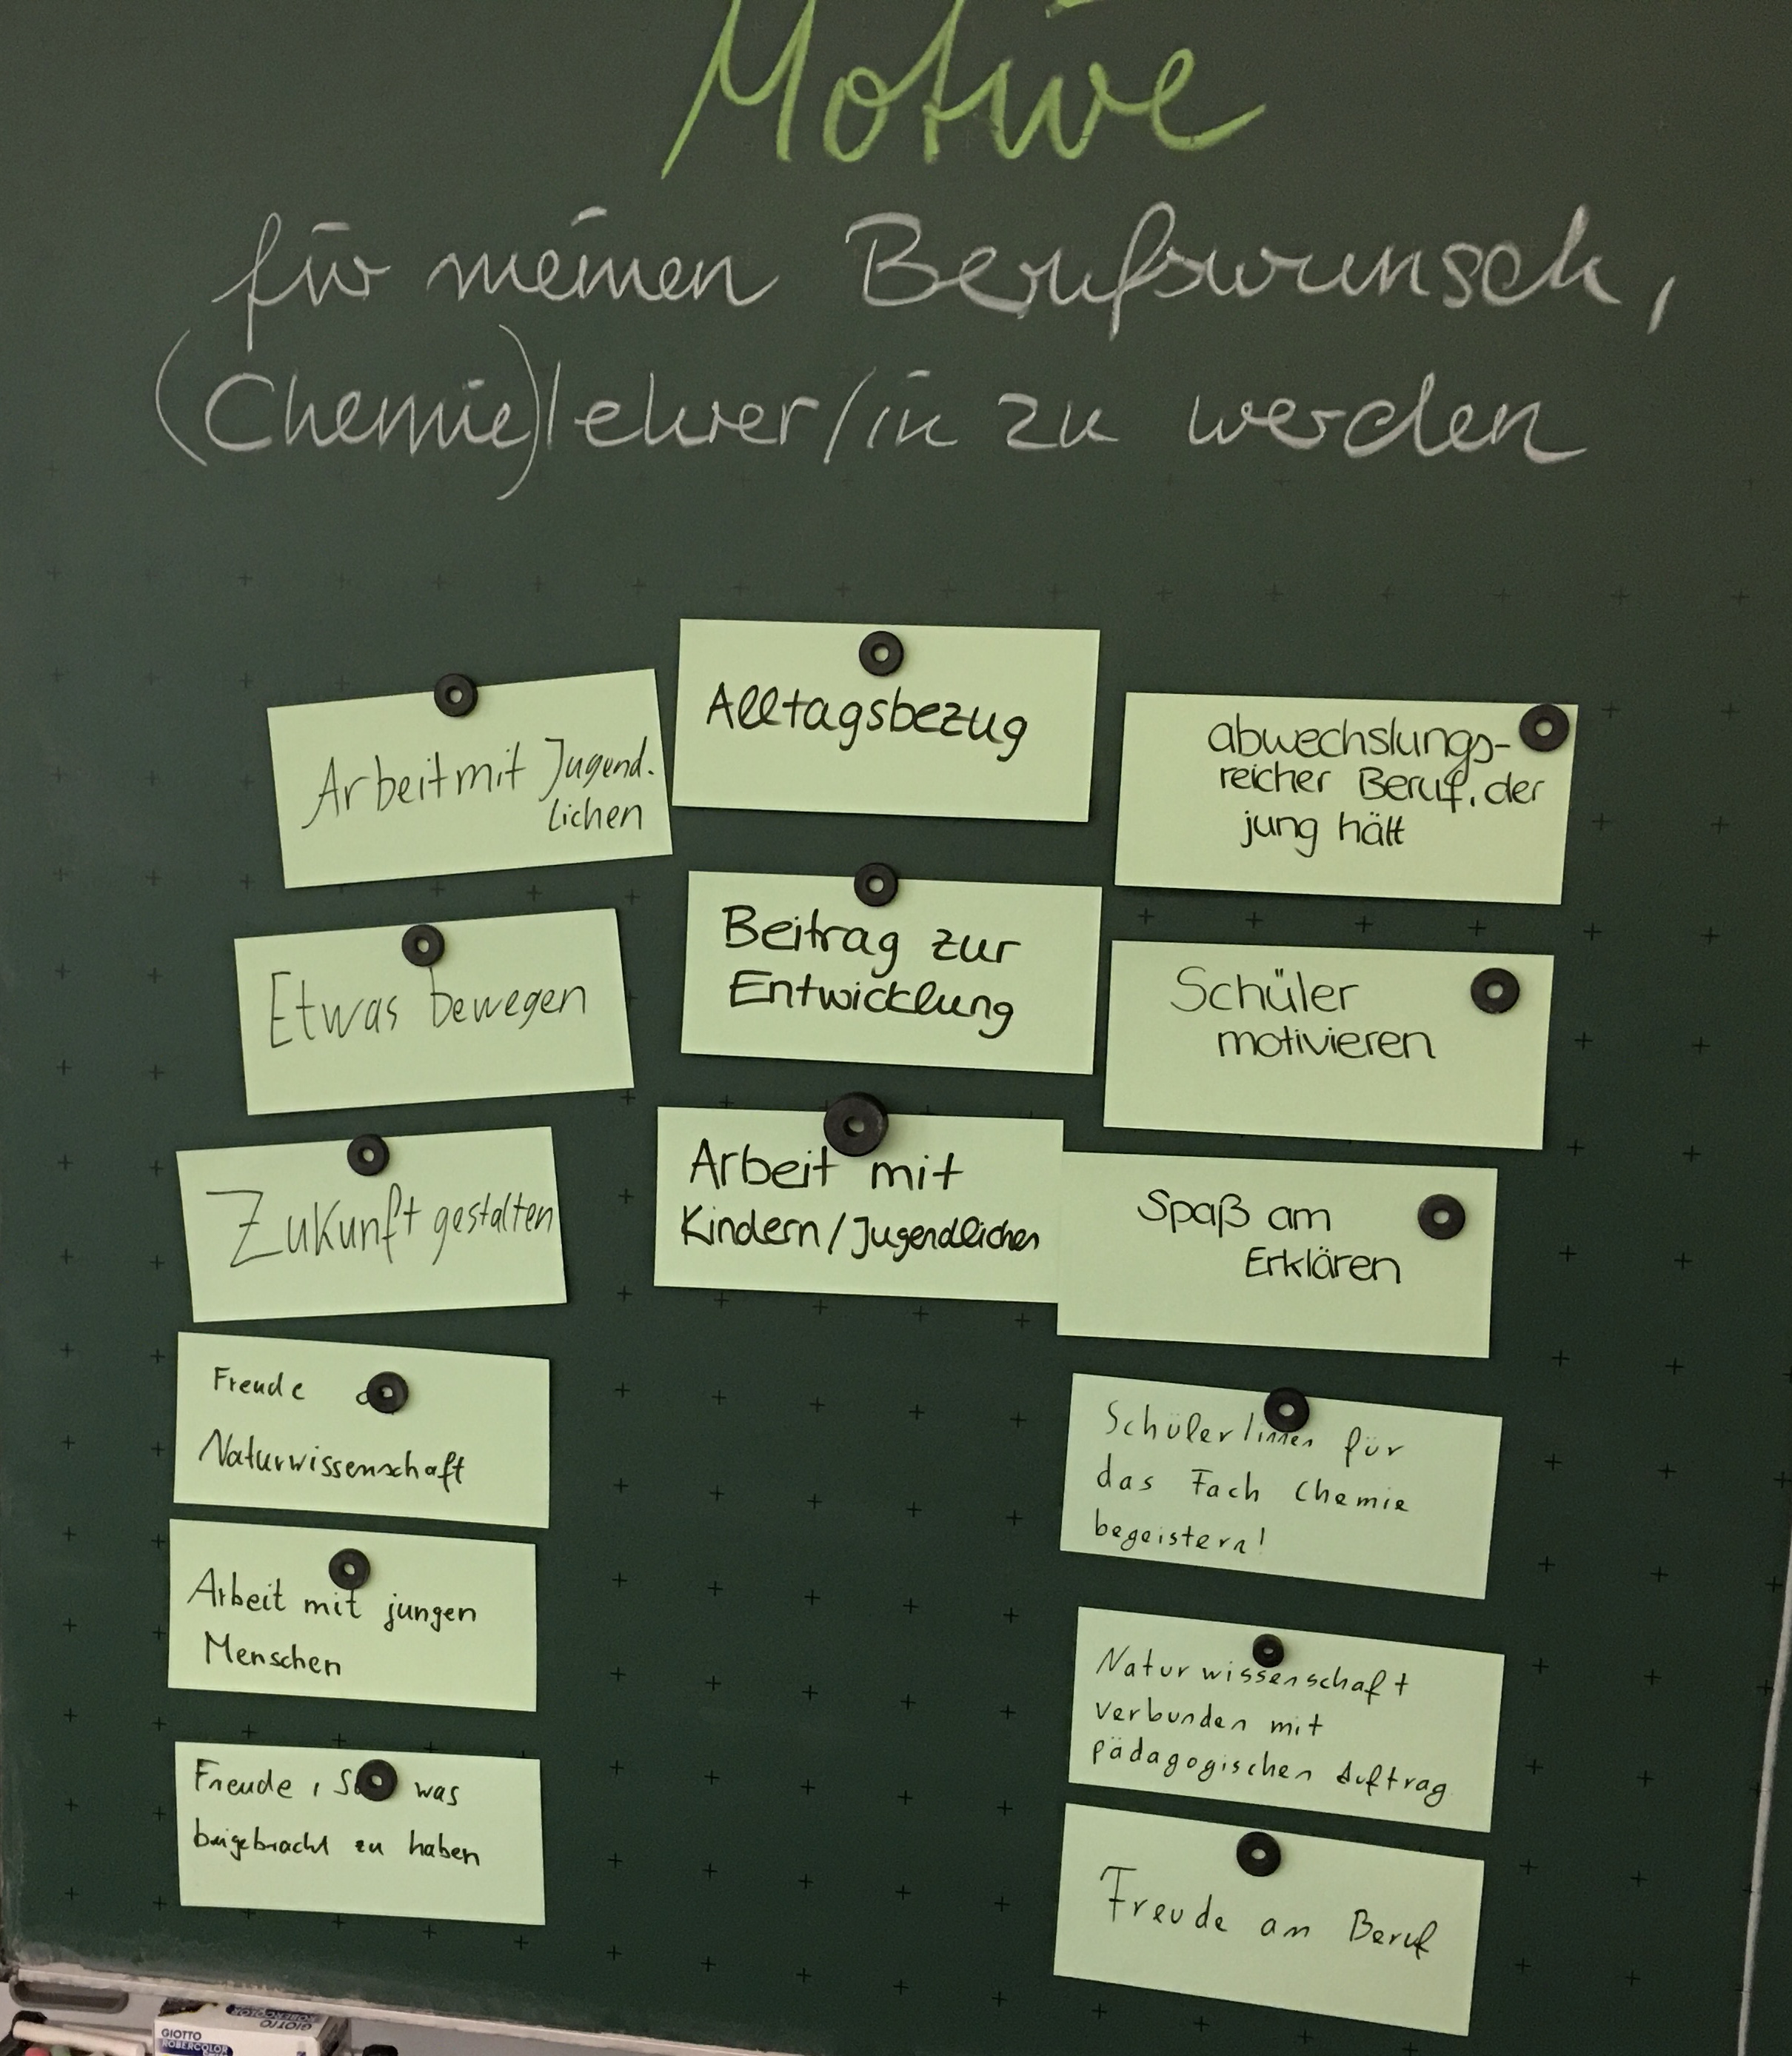 Motive
für meinen Berufswunsch,
(Chemie)lehrer/in zu werden
Arbeit mit Jugend-
lichen
Etwas bewegen
Zukunft gestalten
Freude
Naturwissenschaft
Arbeit mit jungen
Menschen
Freude, was
beigebracht zu haben
Alltagsbezug
Beitrag zur
Entwicklung
Arbeit mit
Kindern/Jugendlichen
abwechslungs-
reicher Beruf, der
jung hält
Schüler
motivieren
Spaß am
Erklären
Schüler/innen für
das Fach Chemie
begeistern!
Naturwissenschaft
verbunden mit
pädagogischen Auftrag
Freude am Beruf
GIOTTO
ROBERCOLOR